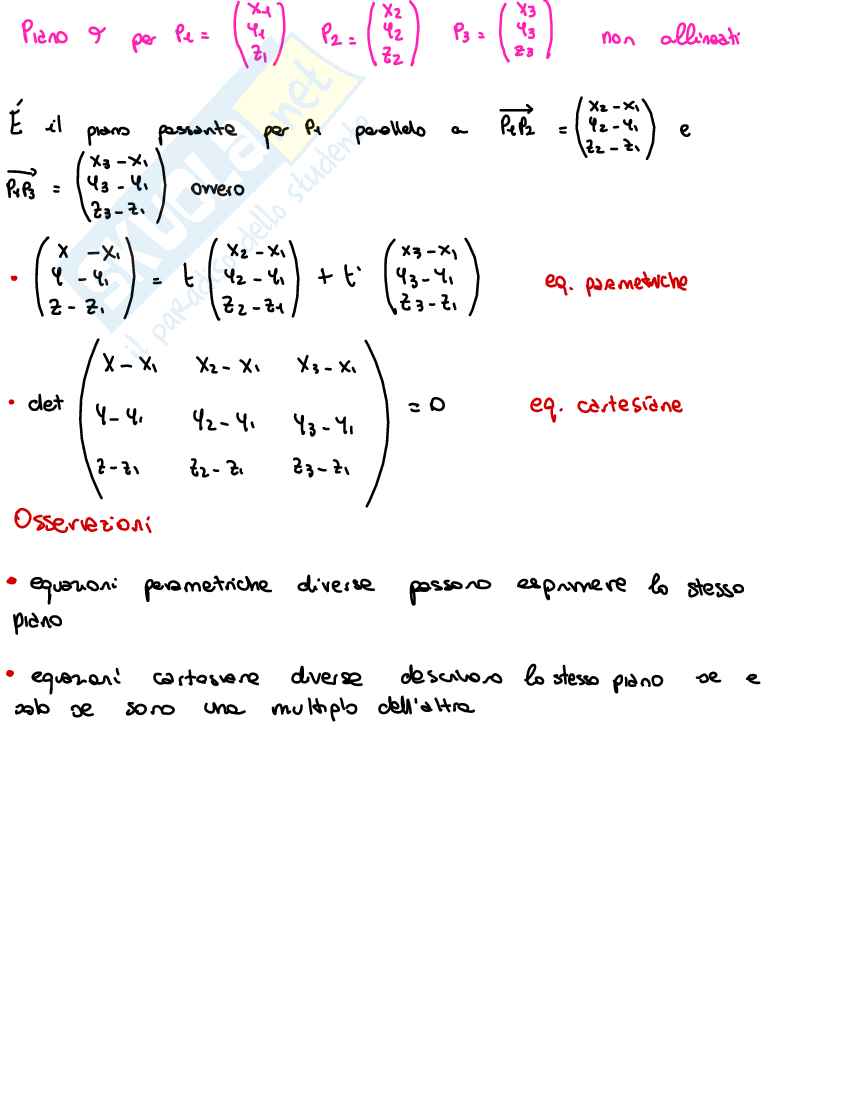 Piano σ per P1 = (x1 y1 z1) P2 = (x2 y2 z2) P3 = (x3 y3 z3) non allineati
É il piano passante per P1 parallelo a P1P2 = (x2 - x1 y2 - y1 z2 - z1) e
P1P3 = (x3 - x1 y3 - y1 z3 - z1) ovvero
• (x - x1 y - y1 z - z1) = t (x2 - x1 y2 - y1 z2 - z1) + t' (x3 - x1 y3 - y1 z3 - z1) eq. parametriche
x - x1 x2 - x1 x3 - x1
• det y - y1 y2 - y1 y3 - y1 = 0 eq. cartesiane
z - z1 z2 - z1 z3 - z1
Osservazioni
• equazioni parametriche diverse possono esprimere lo stesso
piano
• equazioni cartesiane diverse descrivono lo stesso piano se e
solo se sono una multiplo dell'altra
SKUOLA.net
il paradiso dello studente